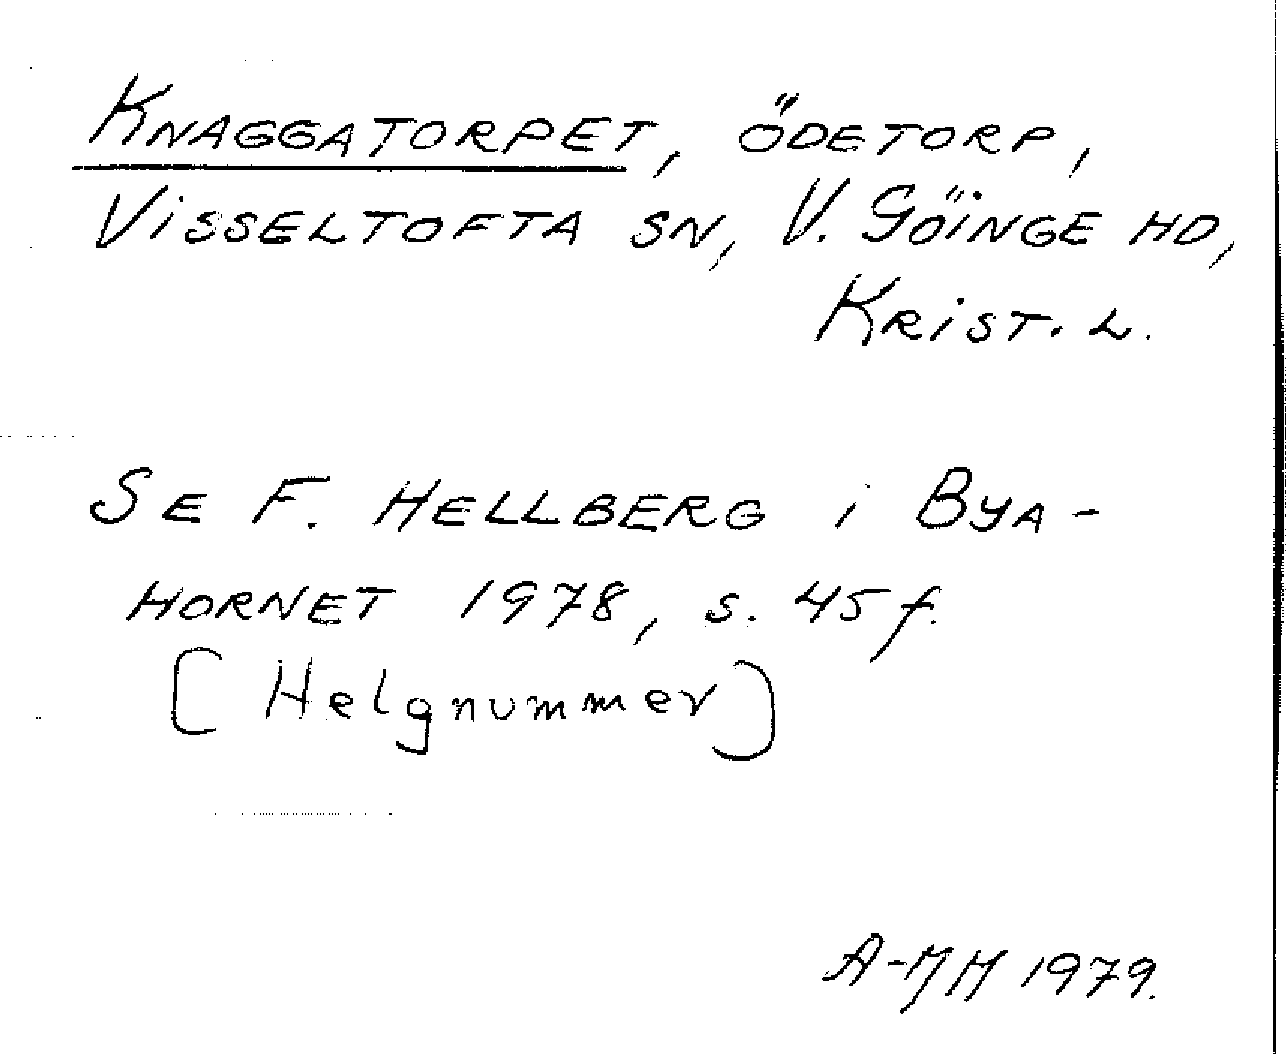 KNAGGATORPET, ÖDETORP,
VISSELTOFTA SN, V. GÖINGE HD,
KRIST. L.
SE F. HELLBERG i BYA-
HORNET 1978, S. 45 f.
[Helgnummer]
A-MH 1979.